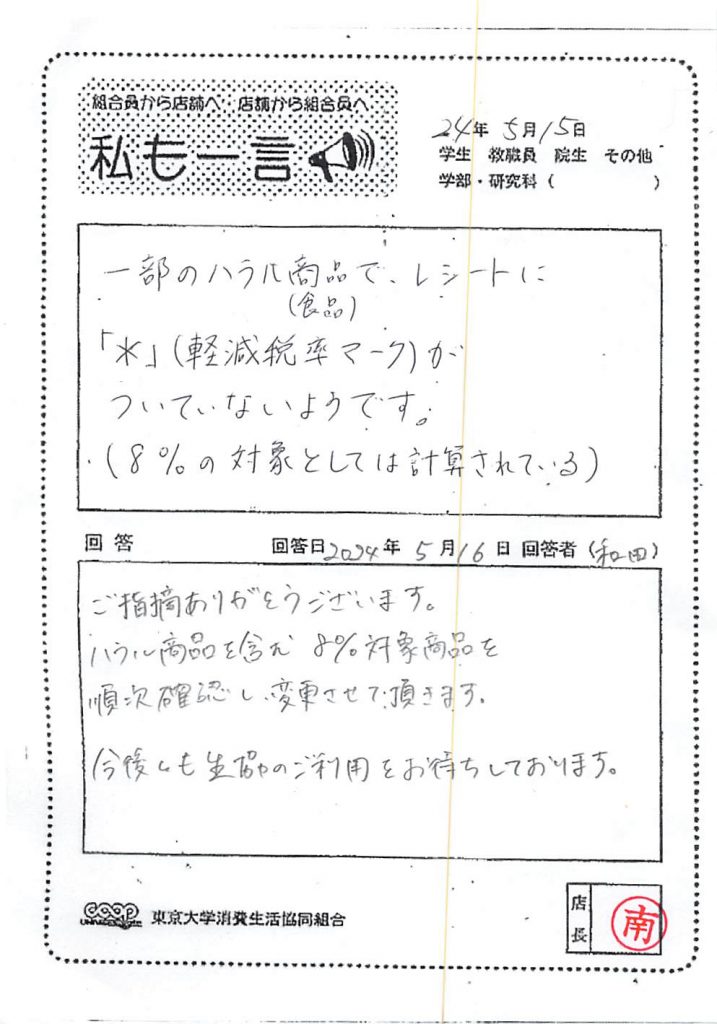 組合員から店舗へ 店舗から組合員へ
私も一言
24年 5月15日
学生 教職員 院生 その他
学部・研究科 ( )
一部のハラル商品で、レシートに
(食品)
「*」(軽減税率マーク)が
ついていないようです。
(8%の対象としては計算されている)
回答 回答日 2024年 5月16日 回答者 (和田)
ご指摘ありがとうございます。
ハラル商品を含む 8%対象商品を
順次確認し変更させて頂きます。
今後とも生協のご利用をお待ちしております。
coop 東京大学消費生活協同組合
店長
南